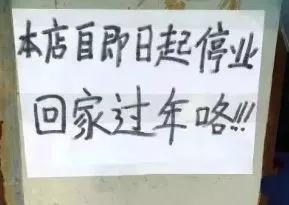 本店自即日起停业
回家过年咯!!!